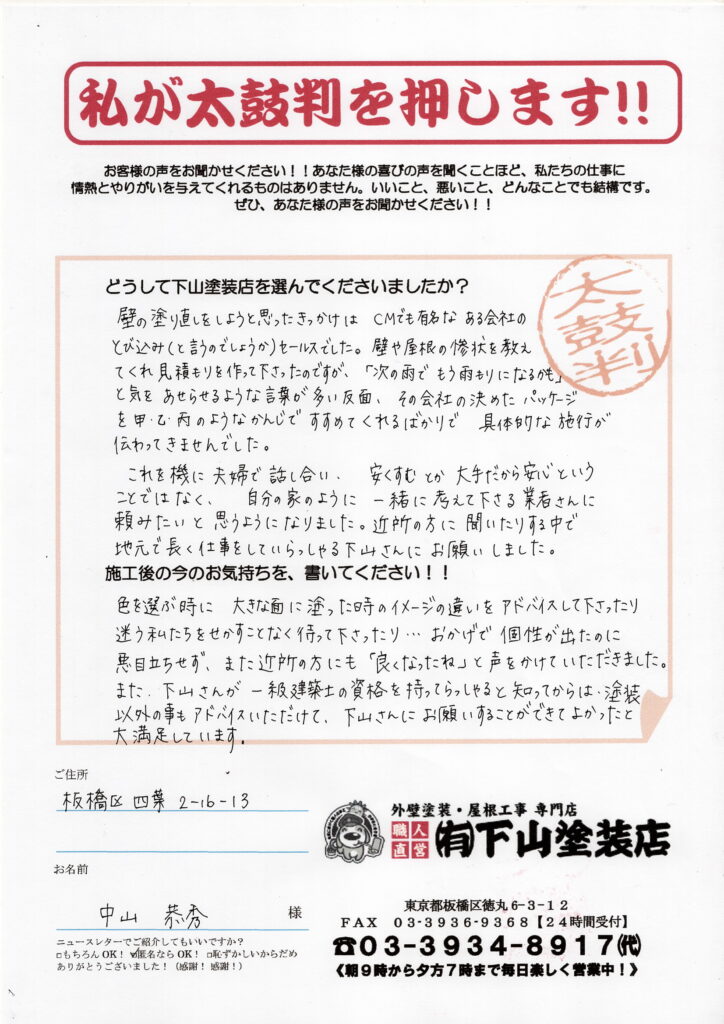 私が太鼓判を押します!!
お客様の声をお聞かせください！！あなた様の喜びの声を聞くことほど、私たちの仕事に
情熱とやりがいを与えてくれるものはありません。いいこと、悪いこと、どんなことでも結構です。
ぜひ、あなた様の声をお聞かせください！！
太鼓判
どうして下山塗装店を選んでくださいましたか？
壁の塗り直しをしようと思ったきっかけは CMでも有名な ある会社の
とび込み(と言うのでしょうか)セールスでした。壁や屋根の惨状を教え
てくれ見積もりを作って下さったのですが、「次の雨で もう雨もりになるかも」
と気を あせらせるような言葉が多い反面、その会社の決めた パッケージ
を 甲・乙・丙のようなかんじで すすめてくれるばかりで 具体的な施行が
伝わってきませんでした。
これを機に 夫婦で 話し合い、 安くすむ とか 大手だから安心という
ことではなく、 自分の家のように 一緒に考えて下さる業者さんに
頼みたいと 思うようになりました。近所の方に 聞いたりする中で
地元で長く仕事をしていらっしゃる下山さんにお願いしました。
施工後の今のお気持ちを、書いてください！！
色を選ぶ時に 大きな面に塗った時のイメージの違いをアドバイスして下さったり
迷う私たちをせかすことなく待って下さったり… おかげで 個性が出たのに
悪目立ちせず、また近所の方にも「良くなったね」と声をかけていただきました。
また、下山さんが 一級建築士の資格を持ってらっしゃると知ってからは、塗装
以外の事もアドバイスいただけて、下山さんにお願いすることができてよかったと
大満足しています。
ご住所
板橋区 四葉 2-16-13
お名前
中山 恭秀 様
ニュースレターでご紹介してもいいですか？
□もちろんOK！ ☑匿名ならOK！ □恥ずかしいからだめ
ありがとうございました！（感謝！感謝！）
外壁塗装・屋根工事 専門店
職人直営 (有)下山塗装店
東京都板橋区徳丸6-3-12
FAX 03-3936-9368【24時間受付】
☎03-3934-8917(代)
《朝9時から夕方7時まで毎日楽しく営業中！》